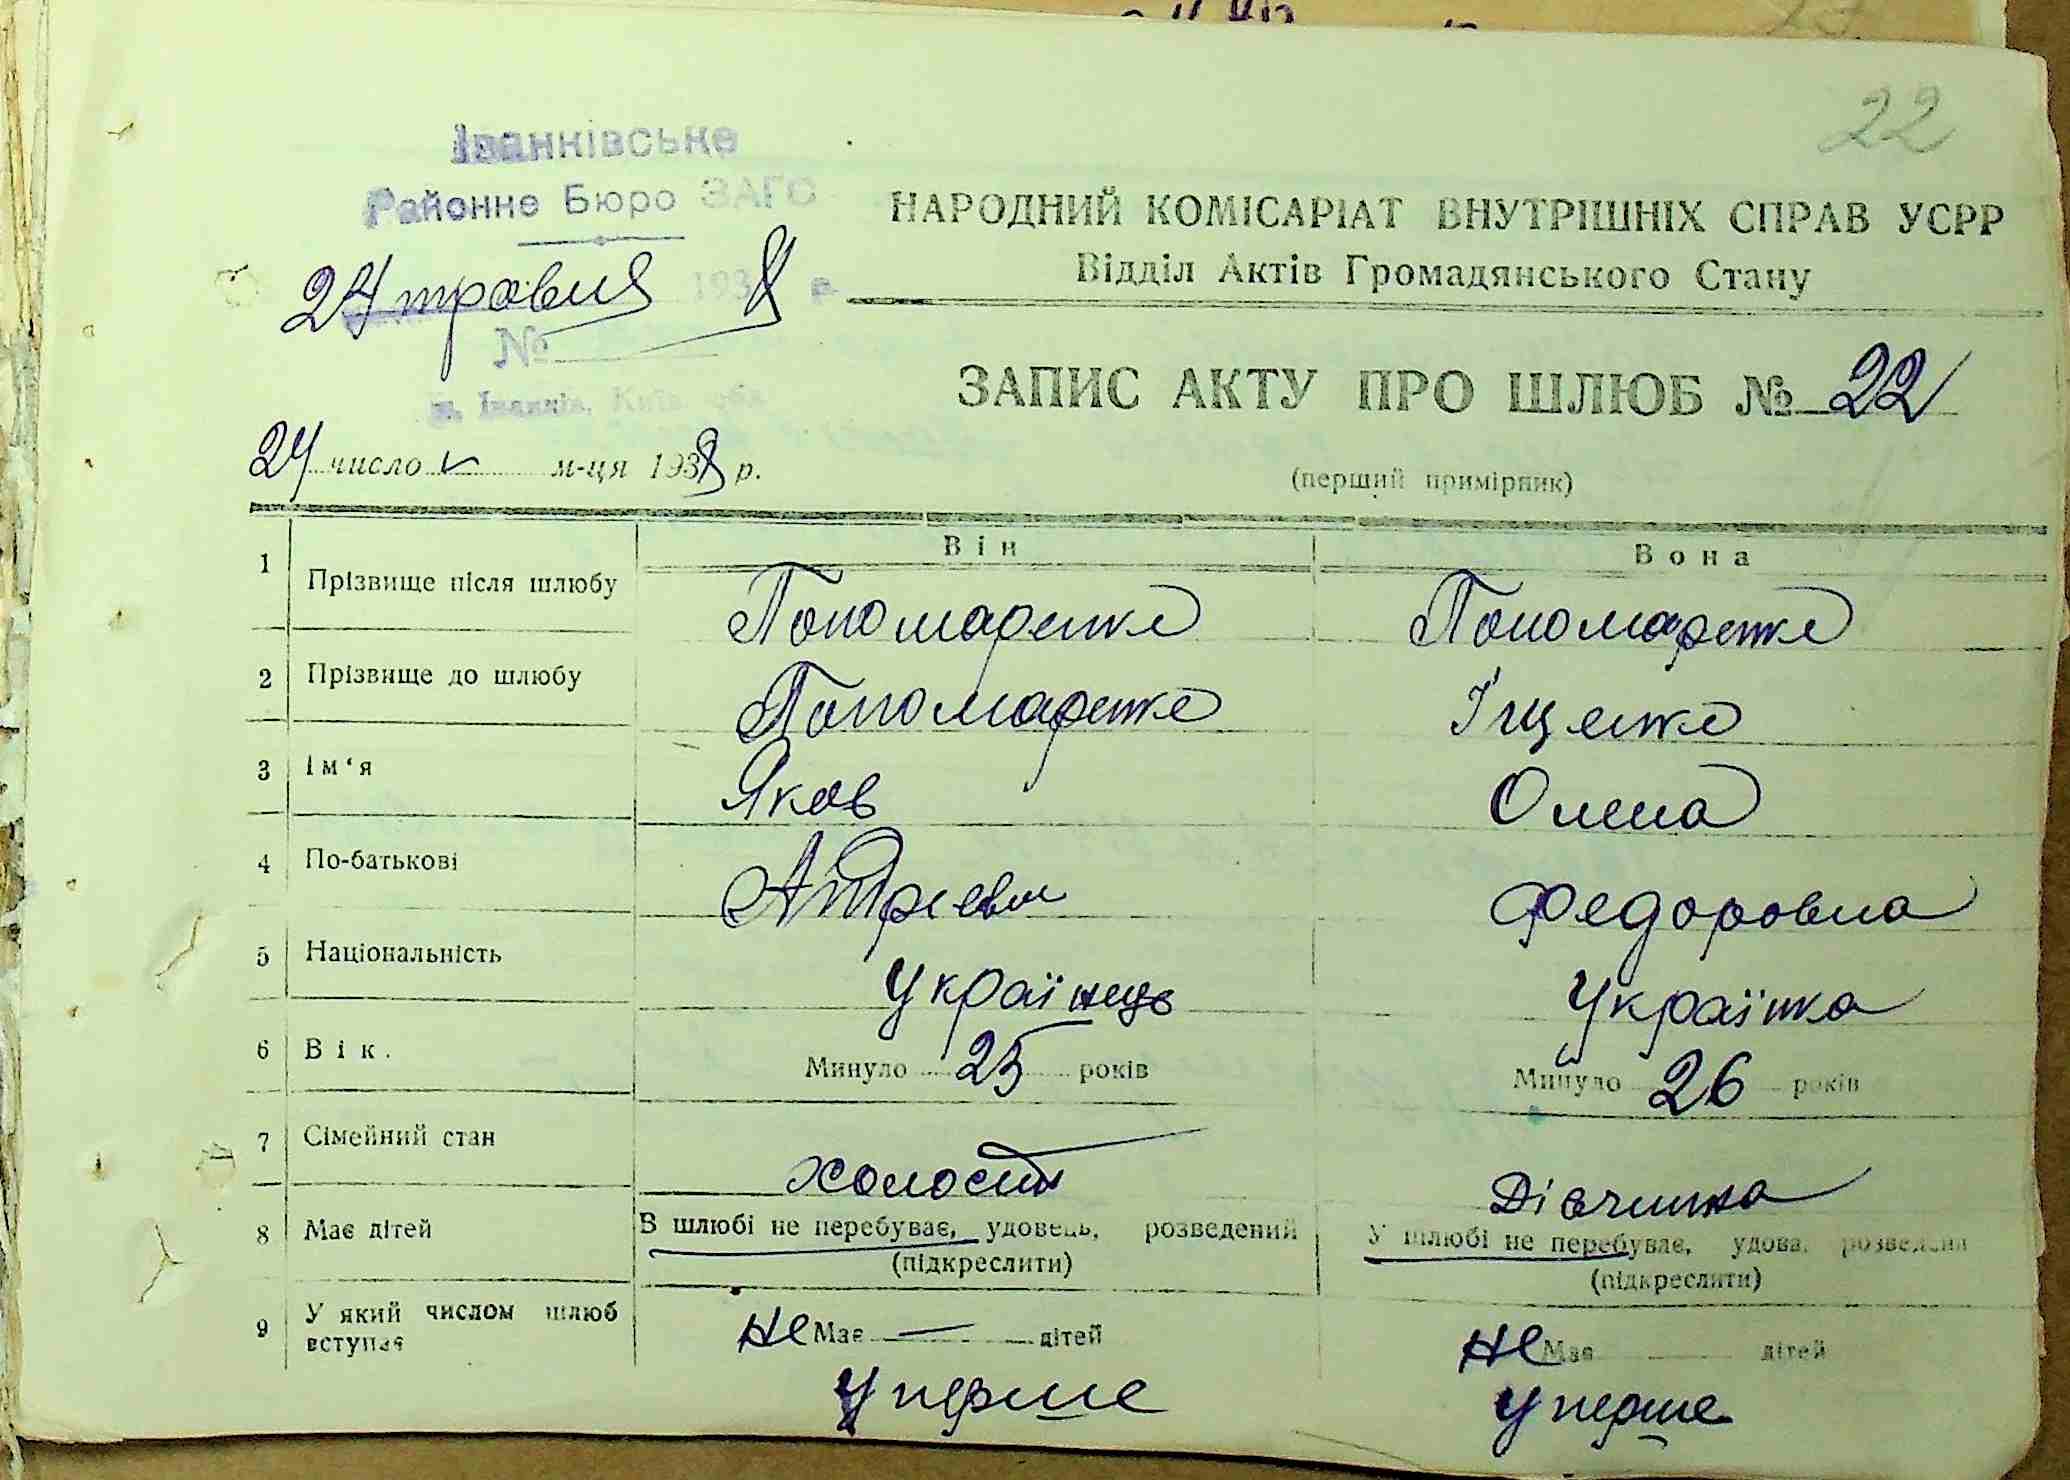 22
Іванківське
Районне Бюро ЗАГС
24 травня 1938 р.
№
м. Іванків, Київ. обл.
НАРОДНИЙ КОМІСАРІАТ ВНУТРІШНІХ СПРАВ УСРР
Відділ Актів Громадянського Стану
ЗАПИС АКТУ ПРО ШЛЮБ № 22
(перший примірник)
24 число V м-ця 1938 р.
Він Вона
1 Прізвище після шлюбу Пономаренко Пономаренко
2 Прізвище до шлюбу Пономаренко Іщенко
3 Ім'я Яков Олена
4 По-батькові Федоровна
5 Національність Українець Українка
6 Вік. Минуло 25 років Минуло 26 років
7 Сімейний стан холостий Дівчинка
В шлюбі не перебуває, удовець, розведений У шлюбі не перебуває, удова, розведена
(підкреслити) (підкреслити)
8 Має дітей не Має — дітей не Має дітей
9 У який числом шлюб вступає уперше уперше